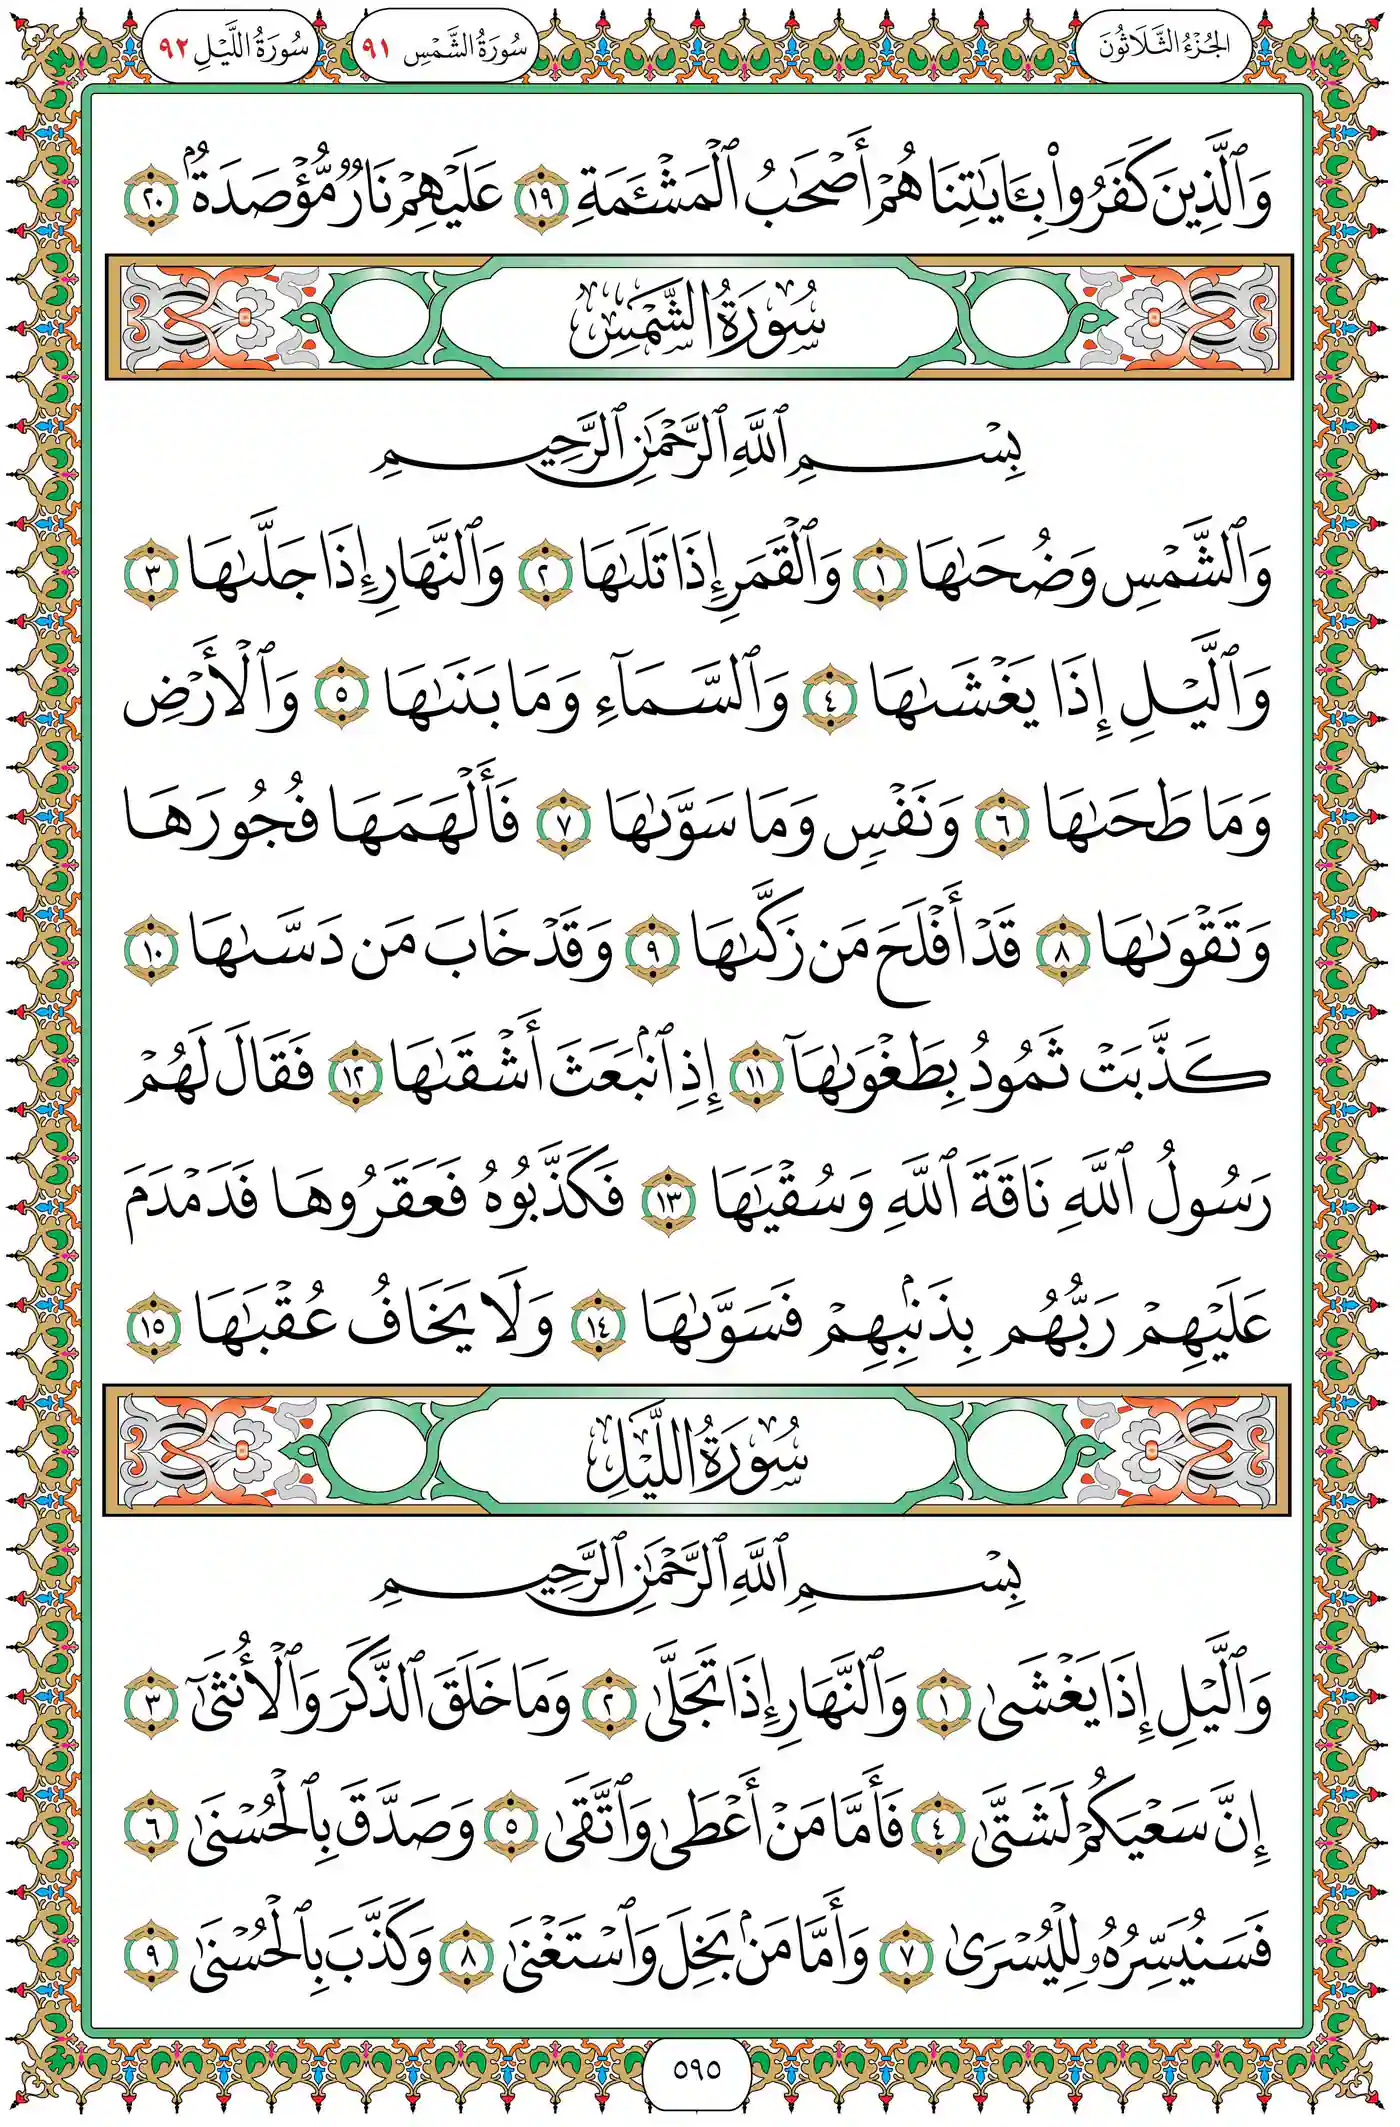 الجُزْءُ الثَّلَاثُونَ سُورَةُ الشَّمْسِ ٩١ سُورَةُ اللَّيْلِ ٩٢
وَٱلَّذِينَ كَفَرُوا۟ بِـَٔايَـٰتِنَا هُمْ أَصْحَـٰبُ ٱلْمَشْـَٔمَةِ ١٩ عَلَيْهِمْ نَارٌ مُّؤْصَدَةٌۢ ٢٠
سُورَةُ الشَّمْسِ
بِسْمِ ٱللَّهِ ٱلرَّحْمَـٰنِ ٱلرَّحِيمِ
وَٱلشَّمْسِ وَضُحَىٰهَا ١ وَٱلْقَمَرِ إِذَا تَلَىٰهَا ٢ وَٱلنَّهَارِ إِذَا جَلَّىٰهَا ٣
وَٱلَّيْلِ إِذَا يَغْشَىٰهَا ٤ وَٱلسَّمَآءِ وَمَا بَنَىٰهَا ٥ وَٱلْأَرْضِ
وَمَا طَحَىٰهَا ٦ وَنَفْسٍ وَمَا سَوَّىٰهَا ٧ فَأَلْهَمَهَا فُجُورَهَا
وَتَقْوَىٰهَا ٨ قَدْ أَفْلَحَ مَن زَكَّىٰهَا ٩ وَقَدْ خَابَ مَن دَسَّىٰهَا ١٠
كَذَّبَتْ ثَمُودُ بِطَغْوَىٰهَآ ١١ إِذِ ٱنۢبَعَثَ أَشْقَىٰهَا ١٢ فَقَالَ لَهُمْ
رَسُولُ ٱللَّهِ نَاقَةَ ٱللَّهِ وَسُقْيَـٰهَا ١٣ فَكَذَّبُوهُ فَعَقَرُوهَا فَدَمْدَمَ
عَلَيْهِمْ رَبُّهُم بِذَنۢبِهِمْ فَسَوَّىٰهَا ١٤ وَلَا يَخَافُ عُقْبَـٰهَا ١٥
سُورَةُ اللَّيْلِ
بِسْمِ ٱللَّهِ ٱلرَّحْمَـٰنِ ٱلرَّحِيمِ
وَٱلَّيْلِ إِذَا يَغْشَىٰ ١ وَٱلنَّهَارِ إِذَا تَجَلَّىٰ ٢ وَمَا خَلَقَ ٱلذَّكَرَ وَٱلْأُنثَىٰٓ ٣
إِنَّ سَعْيَكُمْ لَشَتَّىٰ ٤ فَأَمَّا مَنْ أَعْطَىٰ وَٱتَّقَىٰ ٥ وَصَدَّقَ بِٱلْحُسْنَىٰ ٦
فَسَنُيَسِّرُهُۥ لِلْيُسْرَىٰ ٧ وَأَمَّا مَنۢ بَخِلَ وَٱسْتَغْنَىٰ ٨ وَكَذَّبَ بِٱلْحُسْنَىٰ ٩
٥٩٥